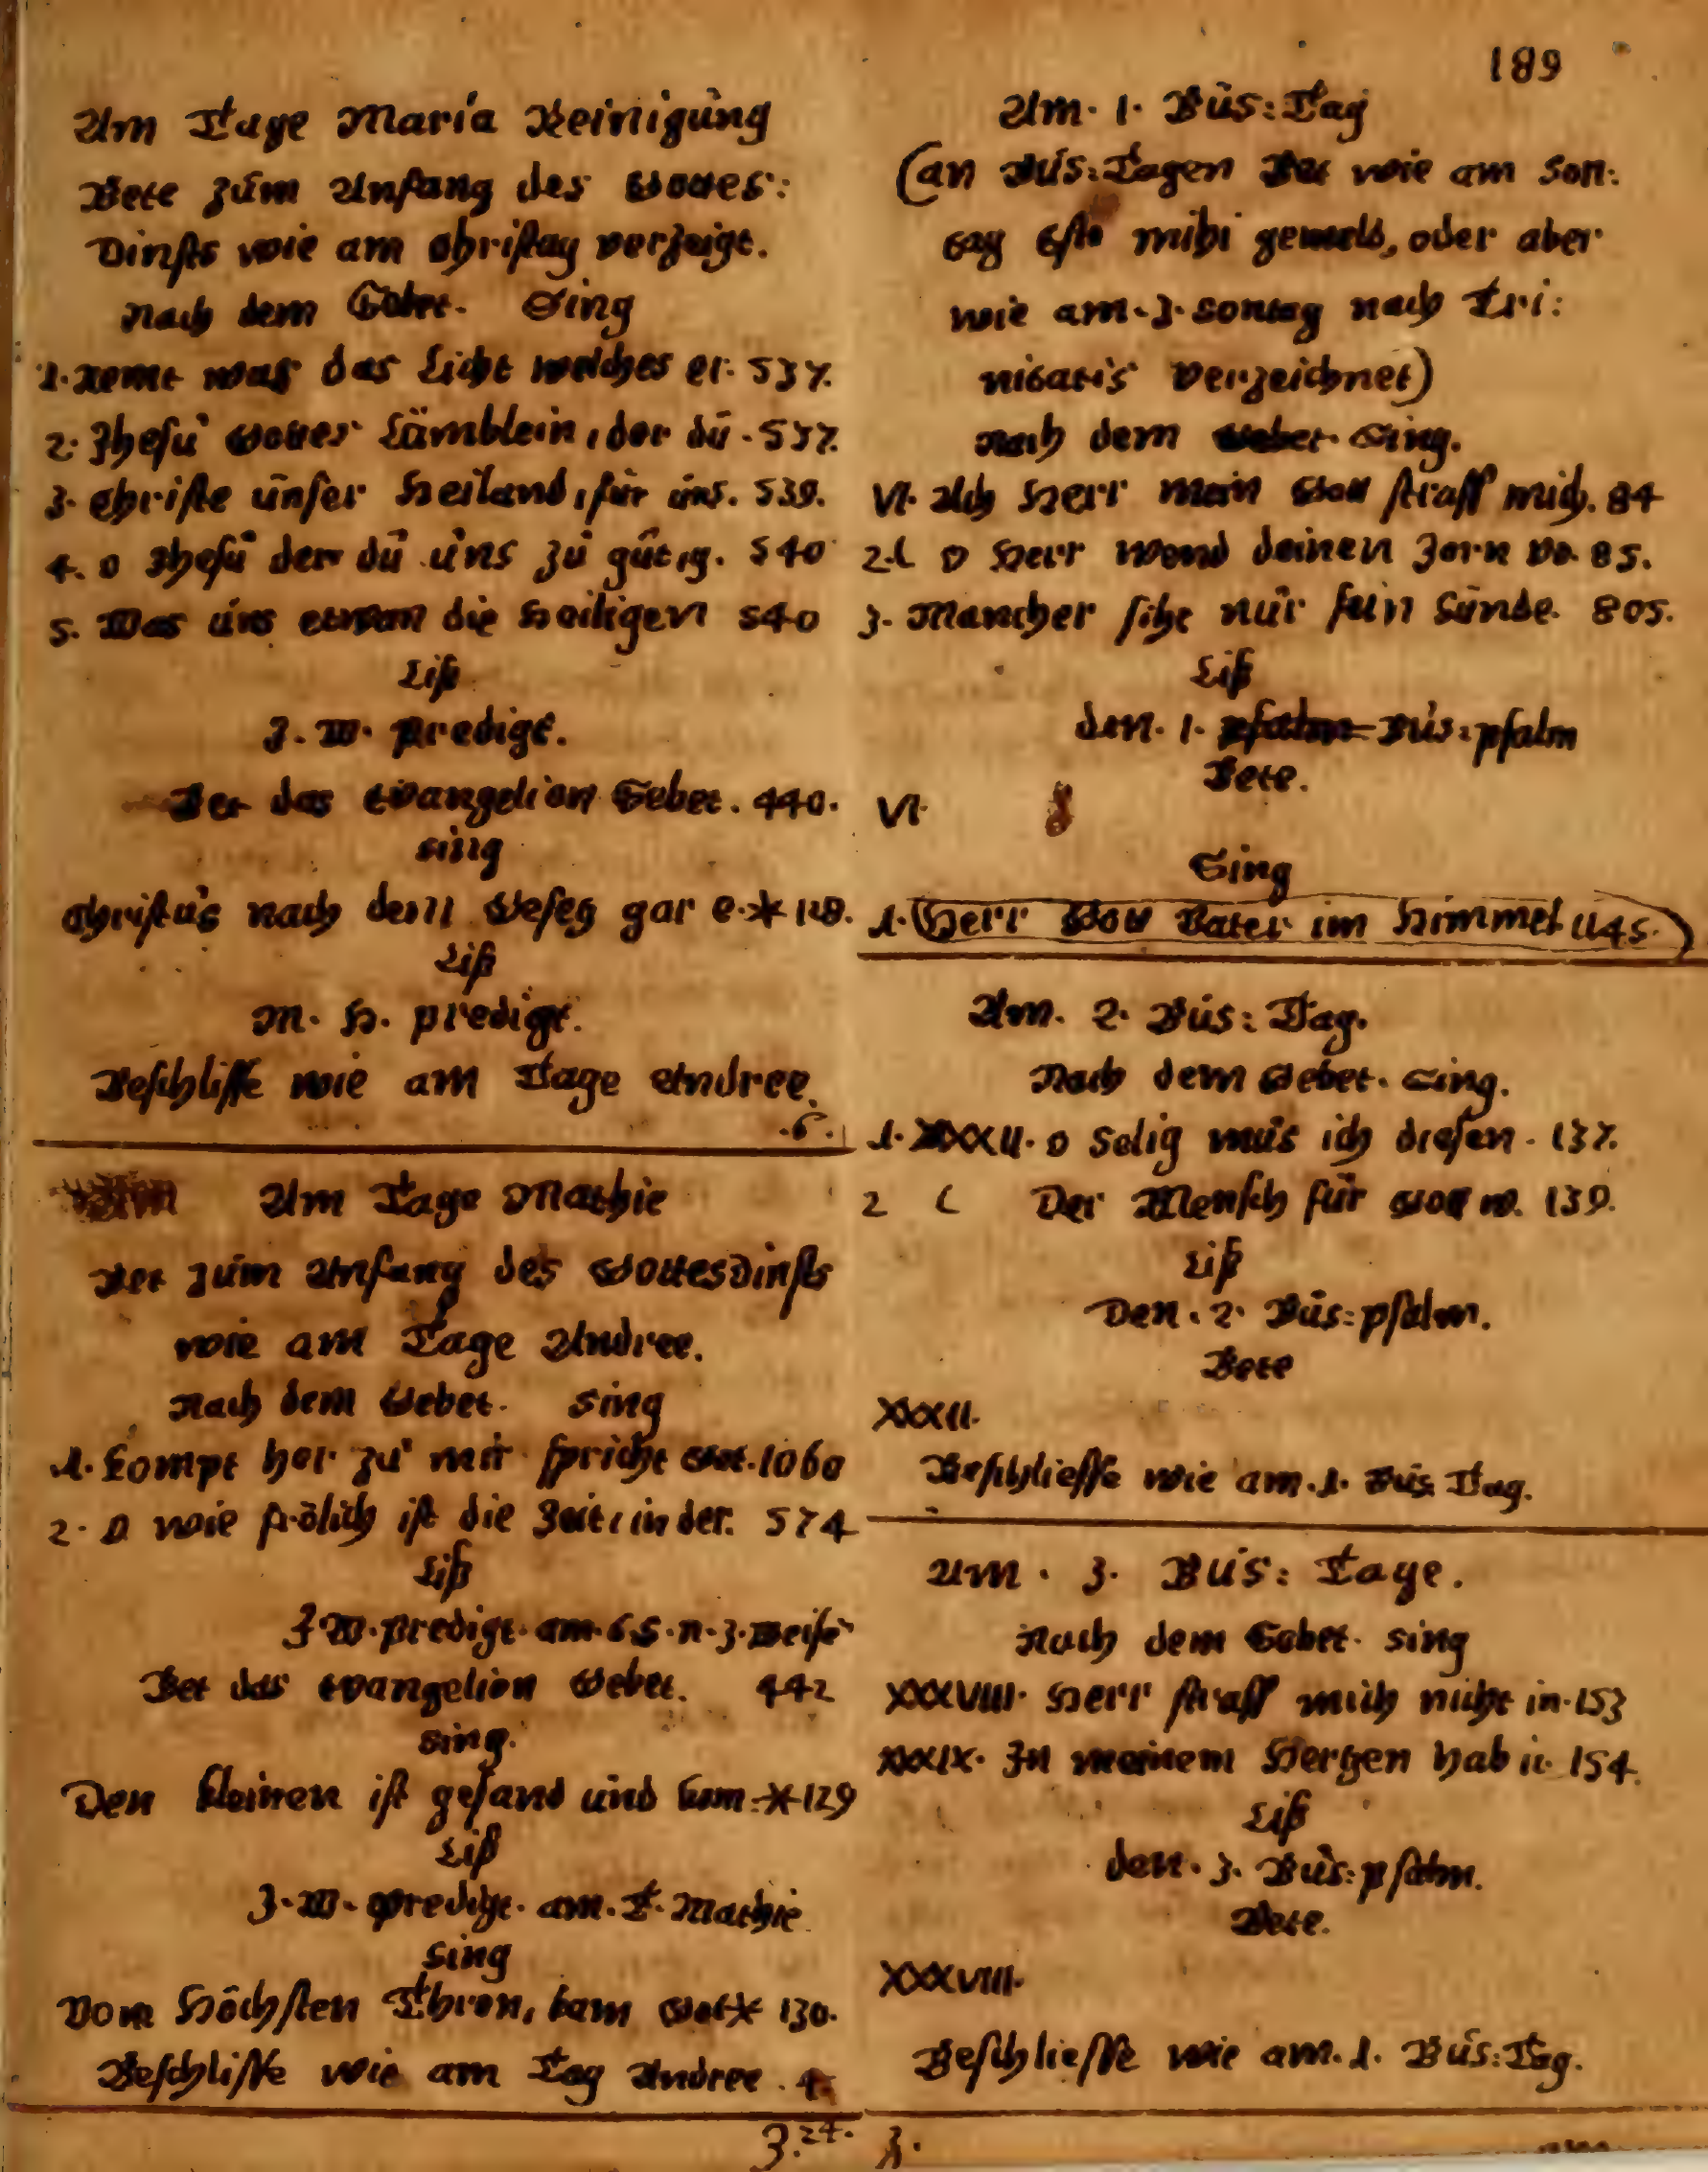 189
Am Tage Maria Reinigung
Bete zum Anfang des Gottes:
Dinsts wie am Christag verzeigt.
Nach dem Gebet. Sing
1. Nemt was das Licht welches er. 537.
2. Jhesu Gottes Lämblein, der du. 537.
3. Christe unser Heiland, für uns. 539.
4. O Jhesu der du uns zu gütig. 540
5. Das uns die Heiligen 540
Liß
J. W. Predigt.
Bet das Evangelion Gebet. 440.
sing
Christus nach dem Gesetz gar e. * 128.
Liß
M. H. predigt.
Beschlisse wie am Tage Andree.
.6.
Am Tage Mathie
Bet zum Anfang des Gottesdinsts
wie am Tage Andree.
Nach dem Gebet. Sing
1. Kompt her zu mir spricht Got. 1060
2. O wie frölich ist die Zeit, in der. 574
Liß
J. W. predigt. am. 6 S. n. 3. Weise
Bet das Evangelion Gebet. 442
sing.
Den kleinen ist gesand und kom: * 129
Liß
J. W. predigt. am. T. Mathie
sing
Vom Höchsten Thron, kam Got * 130.
Beschlisse wie am Tag Andree. 4
3. 24.
Am. 1. Bus: Tag
(an Bus: Tagen Bet wie am Son:
tag Esto mihi gemeld, oder aber
wie am. 3. Sontag nach Tri:
nitatis verzeichnet)
Nach dem Gebet. Sing.
VI. Ach Herr mein Gott straff mich. 84
2. O Herr wend deinen Zorn vo. 85.
3. Mancher siht nur sein Sünde. 805.
Liß
den. 1. psalm Bus: psalm
Bete.
VI.
Sing
1. Herr Gott Vater im Himmel 1145.
Am. 2. Bus: Tag.
Nach dem Gebet. Sing.
1. XXXII. O Selig mus ich diesen. 137.
2 Der Mensch für Gott w. 139.
Liß
Den. 2. Bus: psalm.
Bete
XXXII.
Beschliesse wie am. 1. Bus Tag.
Am. 3. Bus: Tage.
Nach dem Gebet. sing
XXXVIII. Herr straff mich nicht in. 153
XXXIX. In meinem Hertzen hab i. 154.
Liß
den. 3. Bus: psalm.
Bete.
XXXVIII.
Beschliesse wie am. 1. Bus: Tag.
3.